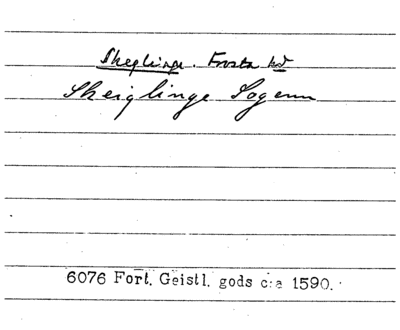 Skeglinge. Frosta hd
Skeiglinge Sogenn
6076 Fort. Geistl. gods c:a 1590.